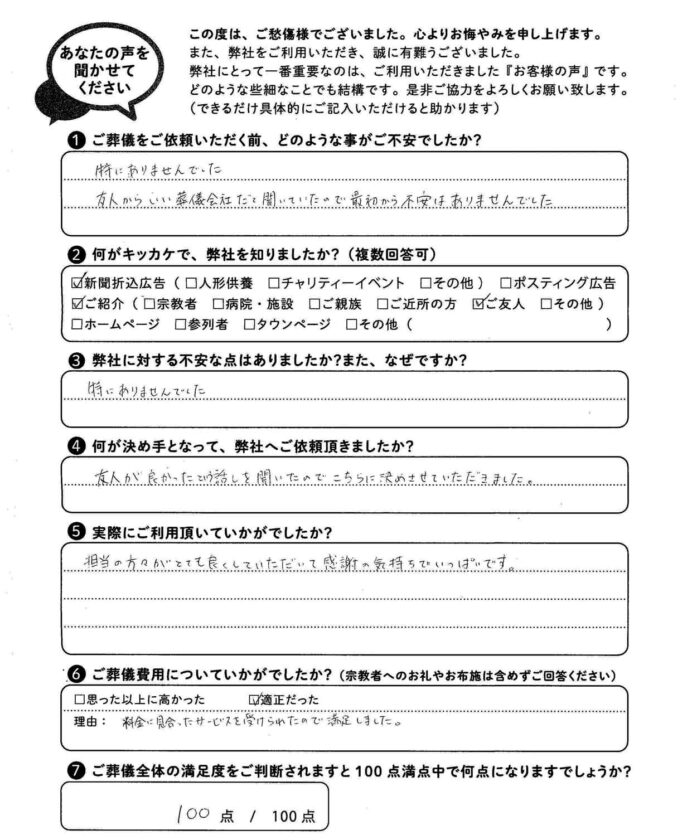 あなたの声を
聞かせて
ください
この度は、ご愁傷様でございました。心よりお悔やみを申し上げます。
また、弊社をご利用いただき、誠に有難うございました。
弊社にとって一番重要なのは、ご利用いただきました『お客様の声』です。
どのような些細なことでも結構です。是非ご協力をよろしくお願い致します。
(できるだけ具体的にご記入いただけると助かります)
❶ ご葬儀をご依頼いただく前、どのような事がご不安でしたか?
特にありませんでした
友人からいい葬儀会社だと聞いていたので最初から不安はありませんでした
❷ 何がキッカケで、弊社を知りましたか?(複数回答可)
☑新聞折込広告 ( □人形供養 □チャリティーイベント □その他 ) □ポスティング広告
☑ご紹介 ( □宗教者 □病院・施設 □ご親族 □ご近所の方 ☑ご友人 □その他 )
□ホームページ □参列者 □タウンページ □その他 ( )
❸ 弊社に対する不安な点はありましたか?また、なぜですか?
特にありませんでした
❹ 何が決め手となって、弊社へご依頼頂きましたか?
友人が良かったという話しを聞いたのでこちらに決めさせていただきました。
❺ 実際にご利用頂いていかがでしたか?
担当の方々がとても良くしていただいて感謝の気持ちでいっぱいです。
❻ ご葬儀費用についていかがでしたか?(宗教者へのお礼やお布施は含めずご回答ください)
□思った以上に高かった ☑適正だった
理由: 料金に見合ったサービスを受けられたので満足しました。
❼ ご葬儀全体の満足度をご判断されますと100点満点中で何点になりますでしょうか?
100 点 / 100点